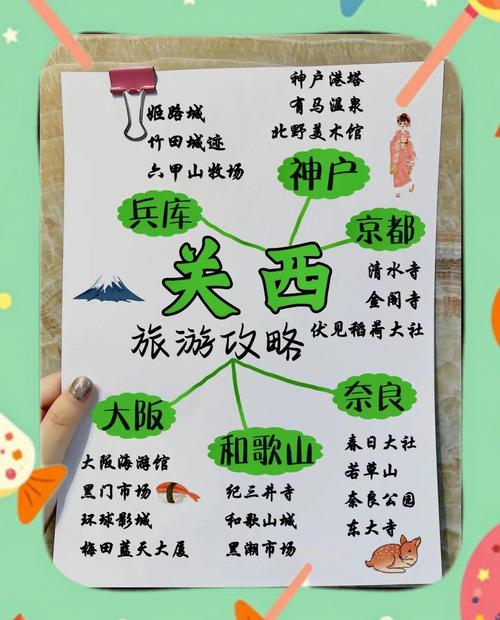 姬路城
竹田城迹
六甲山牧场
神户港塔
有马温泉
北野美术馆
兵库
神户
京都
清水寺
金阁寺
伏见稻荷大社
关西
旅游攻略
大阪
大阪海游馆
黑门市场
环球影城
梅田蓝天大厦
和歌山
纪三井寺
和歌山城
黑潮市场
奈良
春日大社
若草山
奈良公园
东大寺